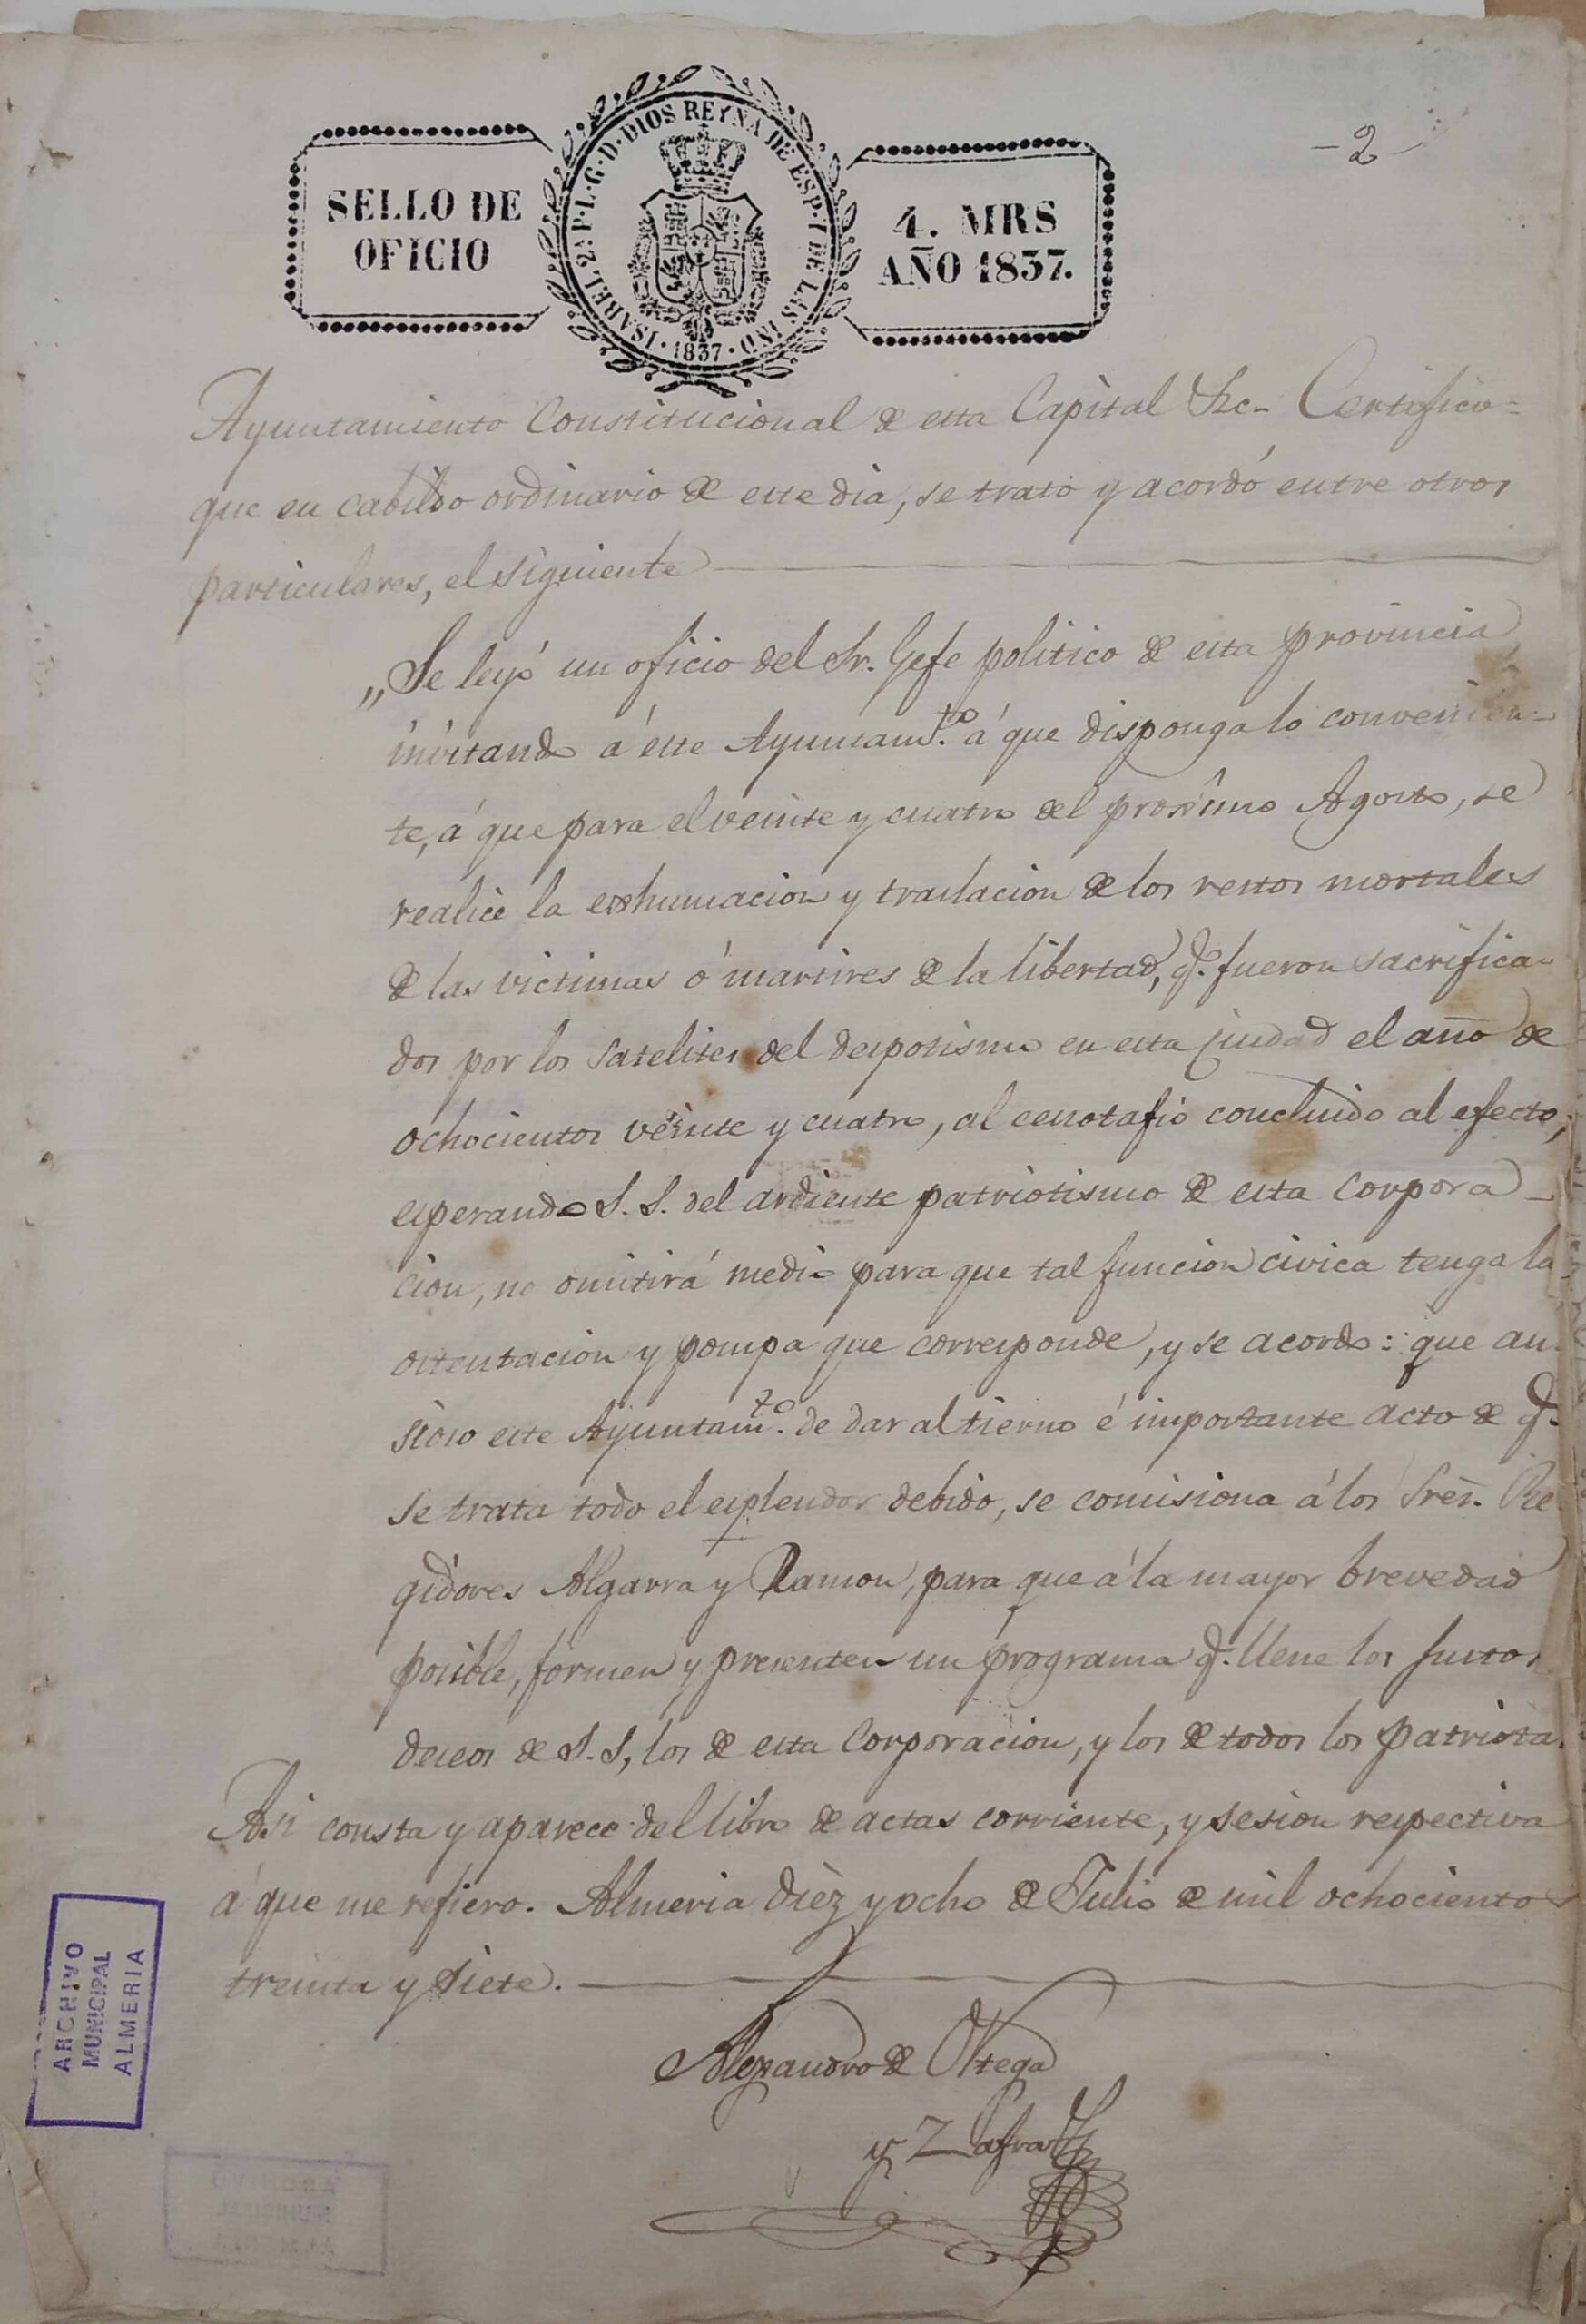 -2-
SELLO DE
OFICIO
ISABEL 2ª P. L. G. D. DIOS REYNA DE ESP. Y DE LAS IND. · 1837 ·
4. MRS
AÑO 1837.
Ayuntamiento Constitucional de esta Capital &c- Certifico=
que en cabildo ordinario de este dia, se trató y acordó entre otros
particulares, el siguiente
„Se leyó un oficio del Sr. Gefe politico de esta provincia
invitando á éste Ayuntamto. á que disponga lo convenien-
te, á que para el veinte y cuatro del proximo Agosto, se
realice la exhumacion y traslacion de los restos mortales
de las victimas ó martires de la libertad, qe. fueron sacrifica-
dos por los satelites del despotismo en esta ciudad el año de
ochocientos veinte y cuatro, al cenotafio concluido al efecto,
esperando S. S. del ardiente patriotismo de esta corpora-
cion, no omitirá medio para que tal funcion civica tenga la
ostentacion y pompa que corresponde, y se acordo: que an-
sioso este Ayuntamto. de dar al tierno é importante acto de q.
se trata todo el esplendor debido, se comisiona á los Sres. Re-
gidores Algarra y Ramon, para que á la mayor brevedad
posible, formen y presenten un programa q. llene los justos
deseos de S. S, los de esta Corporacion, y los de todos los patriotas.
Asi consta y aparece del libro de actas corriente, y sesion respectiva
á que me refiero. Almeria diez y ocho de Julio de mil ochocientos
treinta y siete.
Alexandro de Ortega
y Zafra
ARCHIVO
MUNICIPAL
ALMERIA